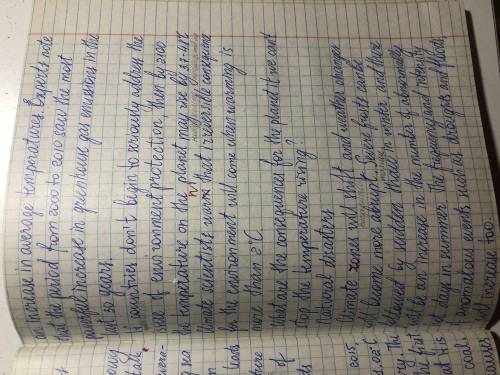 an increase in average temperatures. Experts note
that the period from 2000 to 2010 saw the most
powerful increase in greenhouse gas emissions in the
last 30 years.
If countries don't begin to seriously address the
issue of environment protection, then by 2100
the temperature on the planet may rise by 3.7-4.8°C
Climate scientists warn that irreversible consequences
for the environment will come when warming is
more than 2°C.
What are the consequences for the planet if we can't
stop the temperature rising?
Natural disasters
Climate zones will shift and weather changes
will become more abrupt. Severe frosts can be
followed by sudden thaws in winter and there
will be an increase in the number of abnormally
hot days in summer. The frequency and intensity
of anomalous events such as droughts and floods
will increase too.
talk
sea
leads
of
2015,
1.02°C
the first
coal